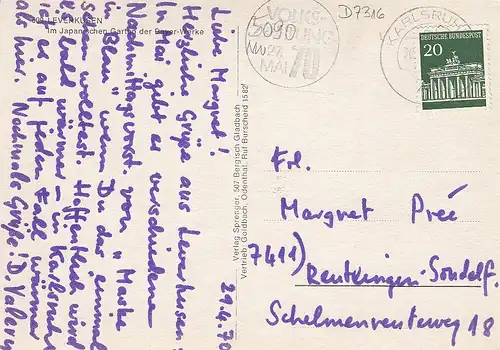 509 LEVERKUSEN
Im Japanischen Garten der Bayer-Werke
Liebe Margret!
Herzliche Grüße aus Leverkusen.
Im Mai gibt es verschiedene
Nachmittagsvorst. von "Maske
in Blau", wenn Du das einmal
sehen wolltest. Hoffentlich wird
es bald wärmer – in Karlsruhe
ist es auf jeden Fall wärmer
als hier. Nochmals Grüße! D.
29.4.70
Verlag Sprenger, 507 Bergisch Gladbach
Vertrieb: Goldbach, Odenthal, Ruf Burscheid 1582
VOLKS-
ZÄHLUNG
27.
MAI 70
5090
D7316
KARLSRUHE
DEUTSCHE BUNDESPOST
20
Frl.
Margret Prée
7411) Reutlingen-Sondelf.
Schelmenreuteweg 18